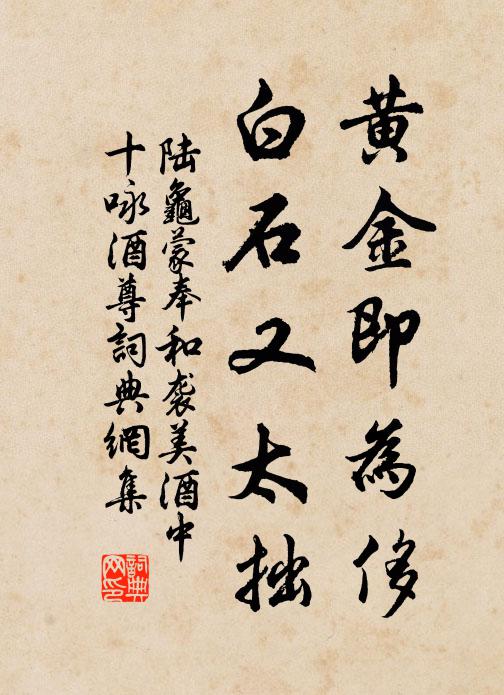 黃金即為侈
白石又太拙
陸龜蒙奉和袭美酒中
十咏酒尊詞典網集
詞典
网印